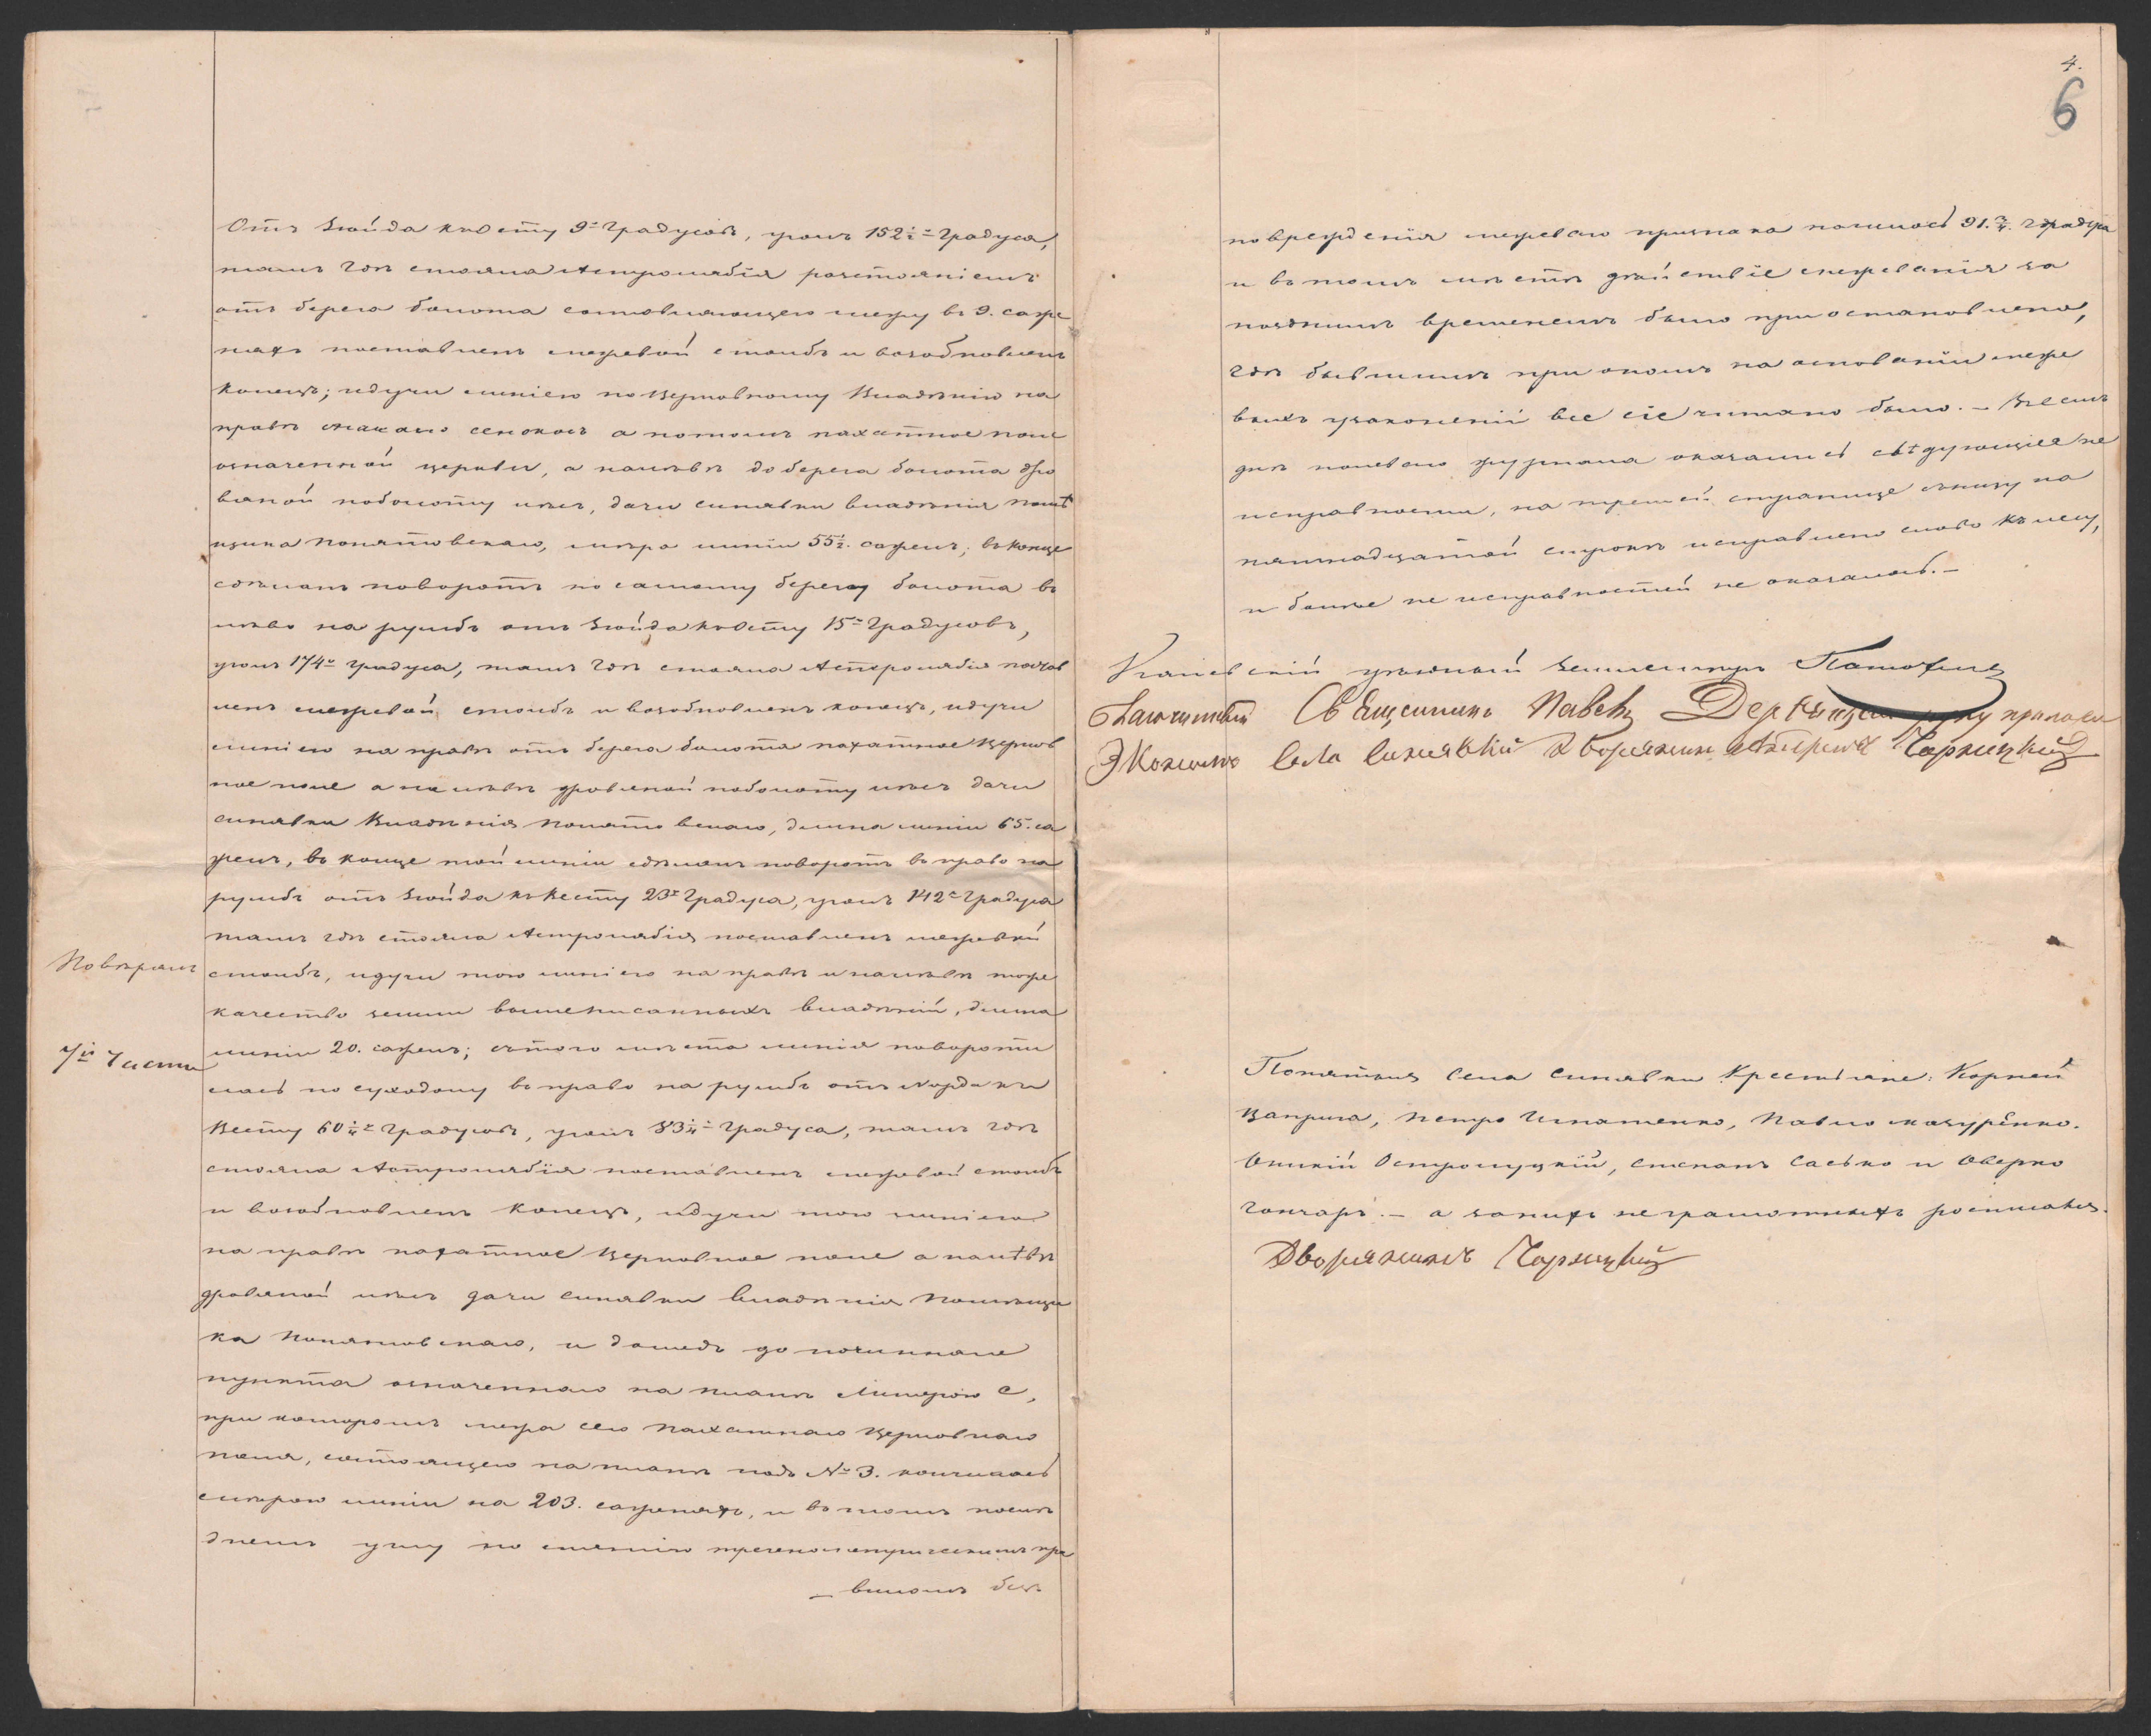 Отъ Зюйда къ Осту 9-ть Градусовъ, уголъ 152½-ю Градуса,
тамъ гдѣ стояла Астролябія разстояніемъ
отъ берега болота составляющего межу въ 9. саже
няхъ поставленъ межевой столбъ и возобновленъ
конецъ; идучи линіею по Церковному Владѣнію на
правѣ сначало сенокосъ а потомъ пахатное поле
означенной церкви, а налѣвѣ до берега болота дро
вяной по болоту лѣсъ, дачи синявки владѣнія помѣ
щика Понятовскаго, мѣра линіи 55½. сажень; въ конце
сдѣланъ поворотъ по самому берегу болота въ
лѣво на румбъ отъ Зюйда къ Осту 15-ть Градусовъ,
уголъ 174-ре градуса, тамъ гдѣ стояла Астролябія постав
ленъ межевой столбъ и возобновленъ конецъ, идучи
линіею на правѣ отъ берега болота пахатное Церков
ное поле а на лѣвѣ дровяной по болоту лѣсъ дачи
синявки Владѣнія Понятовскаго, длина линіи 65. са
жень, въ конце той линіи сдѣланъ поворотъ въ право на
румбъ отъ Зюйда къ Весту 23-и Градуса, уголъ 142-а Градуса
тамъ гдѣ стояла Астролябія поставленъ межевой
столбъ, идучи тою линіею на правѣ и налѣвѣ тоже
качество земли вышеписанныхъ владѣній, длина
линіи 20. сажень; съ того мѣста линія повороти
лась по суходолу въ право на румбъ отъ Норда къ
Весту 60¼-ть Градусовъ, уголъ 83¼-и Градуса, тамъ гдѣ
стояла Астролябія поставленъ межевой столбъ
и возобновленъ конецъ, идучи тою линіею
на правѣ пахатное Церковное поле а налѣвѣ
дровяной лѣсъ дачи синявки владѣнія помѣщи
ка Понятовскаго, и дошедъ до починнаго
пункта означеннаго на планѣ Литерою С,
при которомъ межа сего пахатнаго Церковнаго
поля, состоящего на планѣ подъ № 3. кончилась
мѣрою линіи на 203. саженяхъ, и въ томъ послѣ
днемъ углу по снятію
виломъ безъ
Повѣрялъ
7й Части
4.
6
поврежденія межеваго признака нашлось 91.¾. градуса
и въ томъ мѣстѣ дѣйствіе межеванія за
позднимъ временемъ было приостановлено,
гдѣ бывшимъ при ономъ на основаніи меже
выхъ узаконеній все сіе читано было. –
днѣ полеваго журнала оказались слѣдующіе не
исправности, на третей странице снизу на
пятнадцатой строкѣ исправлено слово къ лесу,
и более не исправностей не оказалось. –
Каневскій уѣздный землемѣръ
Священникъ Павелъ руку приложилъ
Экономъ села Синявкій Дворянинъ Чарницкій
Понятыя села Синявки Крестьяне: Корней
Цаприга, Петро Игнатенко, Павло мазурѣнко.
Оникій Остролуцкій, степанъ Сасько и Оверко
гончаръ. – а занихъ неграмотныхъ росписался.
Дворянинъ Чарницкій